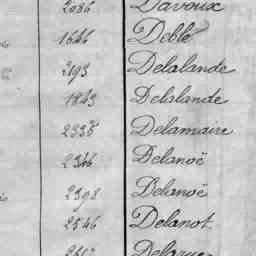 2086 Davoux
1646 Deblé
2193 Delalande
1843 Delalande
2338 Delamaire
2346 Delanoë
2398 Delanoë
2546 Delanot
Delarue